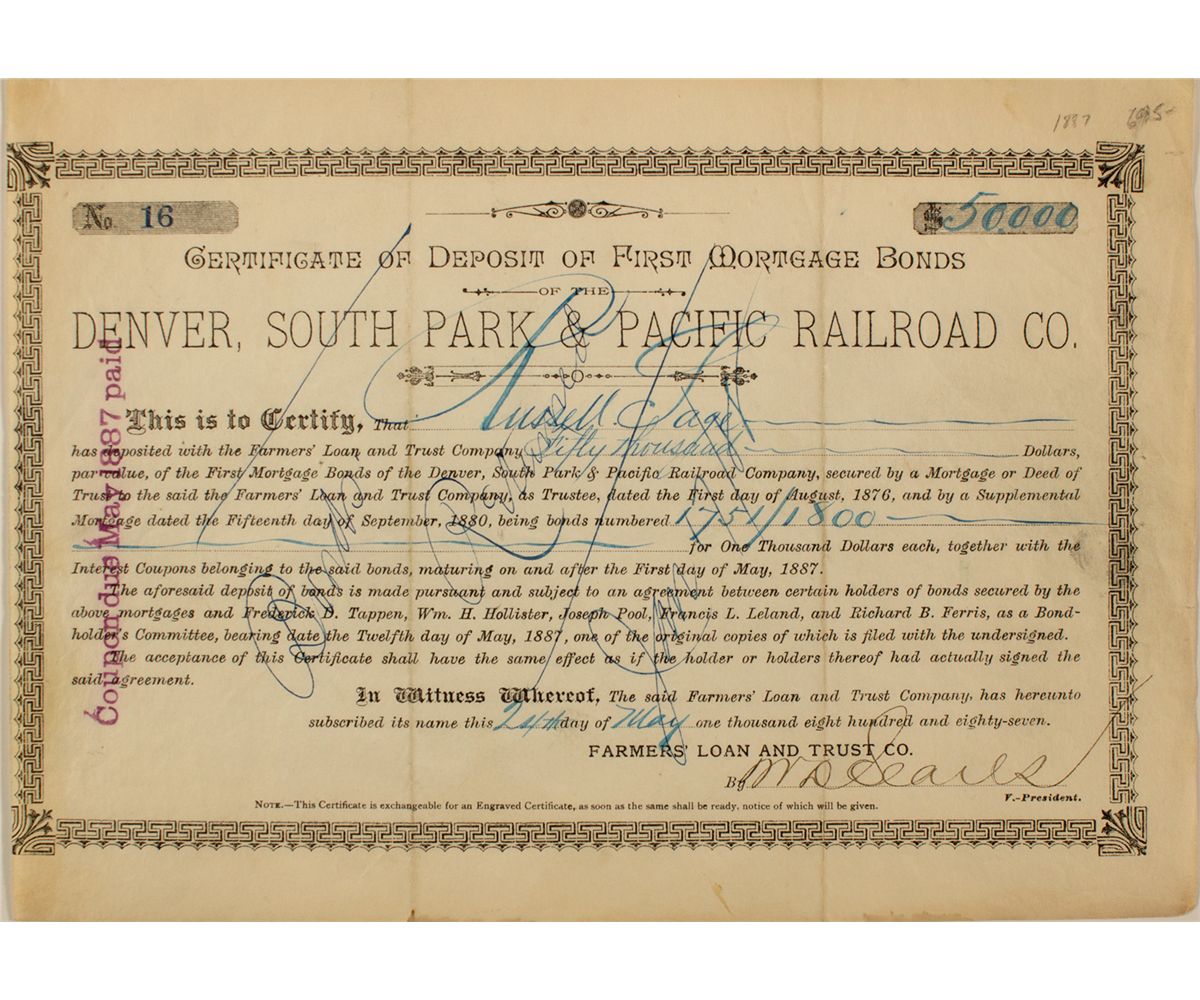 1887
No. 16
50,000
CERTIFICATE OF DEPOSIT OF FIRST MORTGAGE BONDS
OF THE
DENVER, SOUTH PARK & PACIFIC RAILROAD CO.
This is to Certify, That Russell Sage
has deposited with the Farmers' Loan and Trust Company Fifty thousand Dollars,
par value, of the First Mortgage Bonds of the Denver, South Park & Pacific Railroad Company, secured by a Mortgage or Deed of
Trust to the said the Farmers' Loan and Trust Company, as Trustee, dated the First day of August, 1876, and by a Supplemental
Mortgage dated the Fifteenth day of September, 1880, being bonds numbered 1751/1800
for One Thousand Dollars each, together with the
Interest Coupons belonging to the said bonds, maturing on and after the First day of May, 1887.
The aforesaid deposit of bonds is made pursuant and subject to an agreement between certain holders of bonds secured by the
above mortgages and Frederick D. Tappen, Wm. H. Hollister, Joseph Pool, Francis L. Leland, and Richard B. Ferris, as a Bond-
holder's Committee, bearing date the Twelfth day of May, 1887, one of the original copies of which is filed with the undersigned.
The acceptance of this Certificate shall have the same effect as if the holder or holders thereof had actually signed the
said agreement.
In Witness Whereof, The said Farmers' Loan and Trust Company, has hereunto
subscribed its name this 24th day of May one thousand eight hundred and eighty-seven.
FARMERS' LOAN AND TRUST CO.
By
V.-President.
NOTE.—This Certificate is exchangeable for an Engraved Certificate, as soon as the same shall be ready, notice of which will be given.
Coupon due May 1887 paid
Bonds